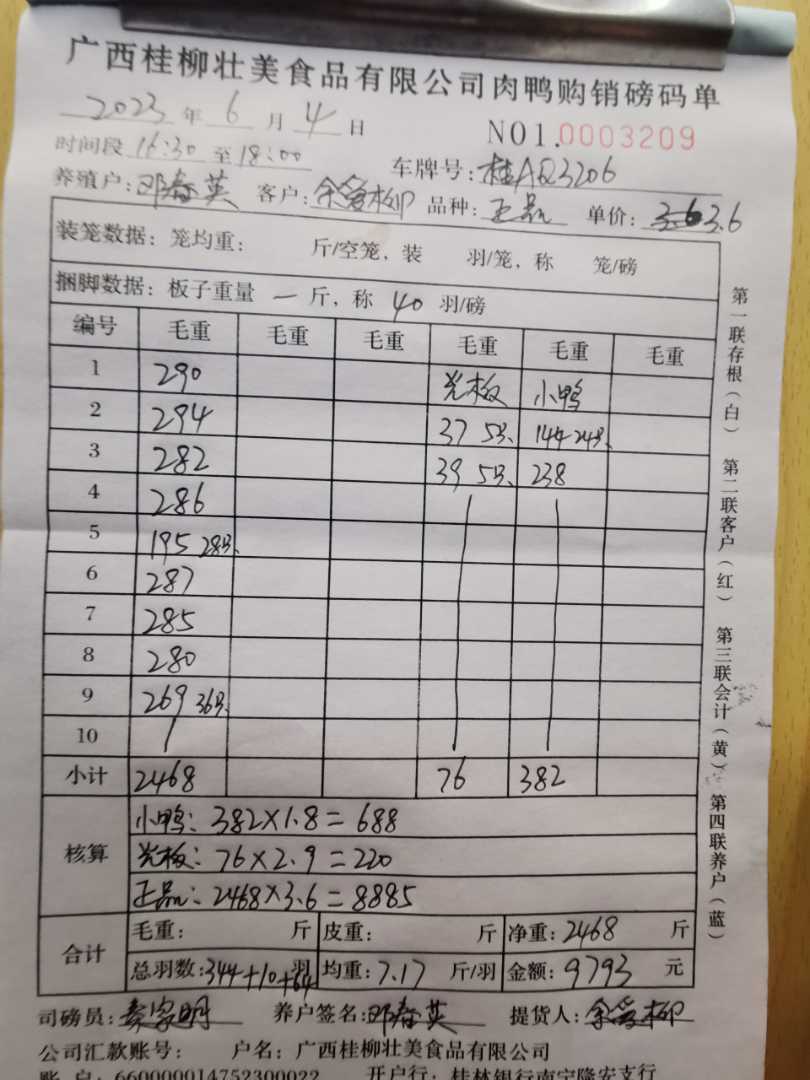 广西桂柳壮美食品有限公司肉鸭购销磅码单
2023 年 6 月 4 日 NO1.0003209
时间段 16:30 至 18:00 车牌号: 桂AQ3206
养殖户: 邓春英 客户: 余爱柳 品种: 正品 单价: 3.6 3.6
装笼数据: 笼均重: 斤/空笼, 装 羽/笼, 称 笼/磅
捆脚数据: 板子重量 一 斤, 称 40 羽/磅
编号 毛重 毛重 毛重 毛重 毛重 毛重
1 290 光板 小鸭
2 294 37 5只、 144 24只、
3 282 39 5只、 238
4 286
5 195 28只、
6 287
7 285
8 280
9 269 36只、
10
小计 2468 76 382
核算
小鸭: 382×1.8=688
光板: 76×2.9=220
正品: 2468×3.6=8885
合计
毛重: 斤 皮重: 斤 净重: 2468 斤
总羽数: 344+10+64 羽 均重: 7.17 斤/羽 金额: 9793 元
司磅员: 家明 养户签名: 邓春英 提货人: 余爱柳
公司汇款账号: 户名: 广西桂柳壮美食品有限公司
账 户: 660000014752300022 开户行: 桂林银行南宁隆安支行
第一联存根(白)
第二联客户(红)
第三联会计(黄)
第四联养户(蓝)